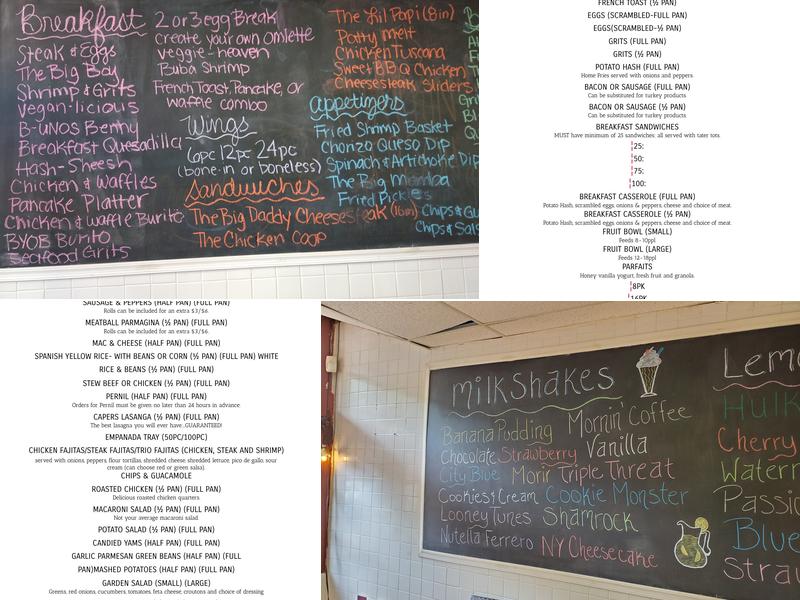 Breakfast
Steak & Eggs
The Big Boy
Shrimp & Grits
Vegan-licious
B-unos Benny
Breakfast Quesadilla
Hash-Sheesh
Chicken & Waffles
Pancake Platter
Chicken & Waffle Burito
BYOB Burito
Seafood Grits
2 or 3 egg Break
create your own omlette
veggie-heaven
Buba Shrimp
French Toast, Pancake, or
waffle combo
Wings
6pc 12pc 24pc
(bone-in or boneless)
Sandwiches
The Big Daddy Cheesesteak (16in)
The Chicken Coop
The Lil Papi (8in)
Patty melt
Chicken Tuscana
Sweet BBQ Chicken
Cheesesteak Sliders
appetizers
Fried Shrimp Basket
Chorizo Queso Dip
Spinach & Artichoke Dip
The Big Mamba
Fried Pickles
Chips & Gu
Chips & Sals
FRENCH TOAST (½ PAN)
EGGS (SCRAMBLED-FULL PAN)
EGGS(SCRAMBLED-½ PAN)
GRITS (FULL PAN)
GRITS (½ PAN)
POTATO HASH (FULL PAN)
Home Fries served with onions and peppers.
BACON OR SAUSAGE (FULL PAN)
Can be substituted for turkey products
BACON OR SAUSAGE (½ PAN)
Can be substituted for turkey products
BREAKFAST SANDWICHES
MUST have minimum of 25 sandwiches: all served with tater tots.
25:
50:
75:
100:
BREAKFAST CASSEROLE (FULL PAN)
Potato Hash, scrambled eggs, onions & peppers, cheese and choice of meat.
BREAKFAST CASSEROLE (½ PAN)
Potato Hash, scrambled eggs, onions & peppers, cheese and choice of meat.
FRUIT BOWL (SMALL)
Feeds 8-10ppl
FRUIT BOWL (LARGE)
Feeds 12-18ppl
PARFAITS
Honey vanilla yogurt, fresh fruit and granola.
8PK
16PK
SAUSAGE & PEPPERS (HALF PAN) (FULL PAN)
Rolls can be included for an extra $3/$6
MEATBALL PARMAGINA (½ PAN) (FULL PAN)
Rolls can be included for an extra $3/$6
MAC & CHEESE (HALF PAN) (FULL PAN)
SPANISH YELLOW RICE- WITH BEANS OR CORN (½ PAN) (FULL PAN) WHITE
RICE & BEANS (½ PAN) (FULL PAN)
STEW BEEF OR CHICKEN (½ PAN) (FULL PAN)
PERNIL (HALF PAN) (FULL PAN)
Orders for Pernil must be given no later than 24 hours in advance.
CAPERS LASANGA (½ PAN) (FULL PAN)
The best lasagna you will ever have...GUARANTEED!
EMPANADA TRAY (50PC/100PC)
CHICKEN FAJITAS/STEAK FAJITAS/TRIO FAJITAS (CHICKEN, STEAK AND SHRIMP)
served with onions, peppers, flour tortillas, shredded cheese shredded lettuce, pico de gallo, sour
cream (can choose red or green salsa).
CHIPS & GUACAMOLE
ROASTED CHICKEN (½ PAN) (FULL PAN)
Delicious roasted chicken quarters.
MACARONI SALAD (½ PAN) (FULL PAN)
Not your average macaroni salad
POTATO SALAD (½ PAN) (FULL PAN)
CANDIED YAMS (HALF PAN) (FULL PAN)
GARLIC PARMESAN GREEN BEANS (HALF PAN) (FULL
PAN)MASHED POTATOES (HALF PAN) (FULL PAN)
GARDEN SALAD (SMALL) (LARGE)
Greens, red onions, cucumbers, tomatoes, feta cheese, croutons and choice of dressing
milkShakes
Banana Pudding Mornin' Coffee
Chocolate Strawberry Vanilla
City Blue Triple Threat
Cookies & Cream Cookie Monster
Looney Tunes Shamrock
Nutella Ferrero NY Cheesecake
Lem
Hulk
Cherry
Waterm
Passio
Blue
Straw